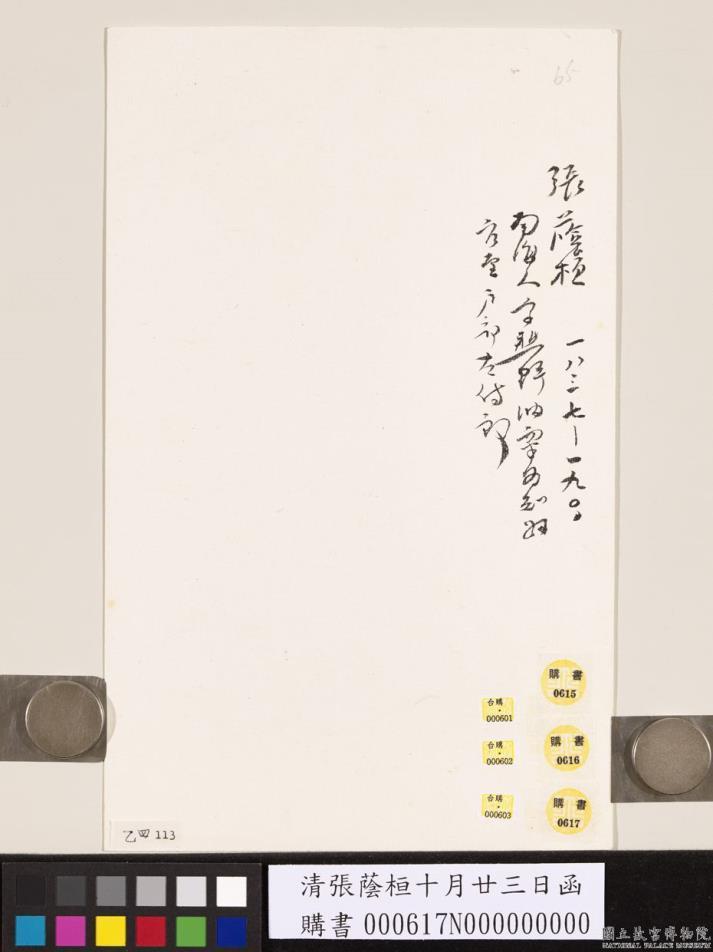 65
張蔭桓 一八三七—一九〇〇
南海人字樵野納粟為知縣
官至戶部左侍郎
購書
0615
台購
000601
購書
0616
台購
000602
購書
0617
台購
000603
乙四 113
清張蔭桓十月廿三日函
購書 000617N000000000
國立故宮博物院
NATIONAL PALACE MUSEUM